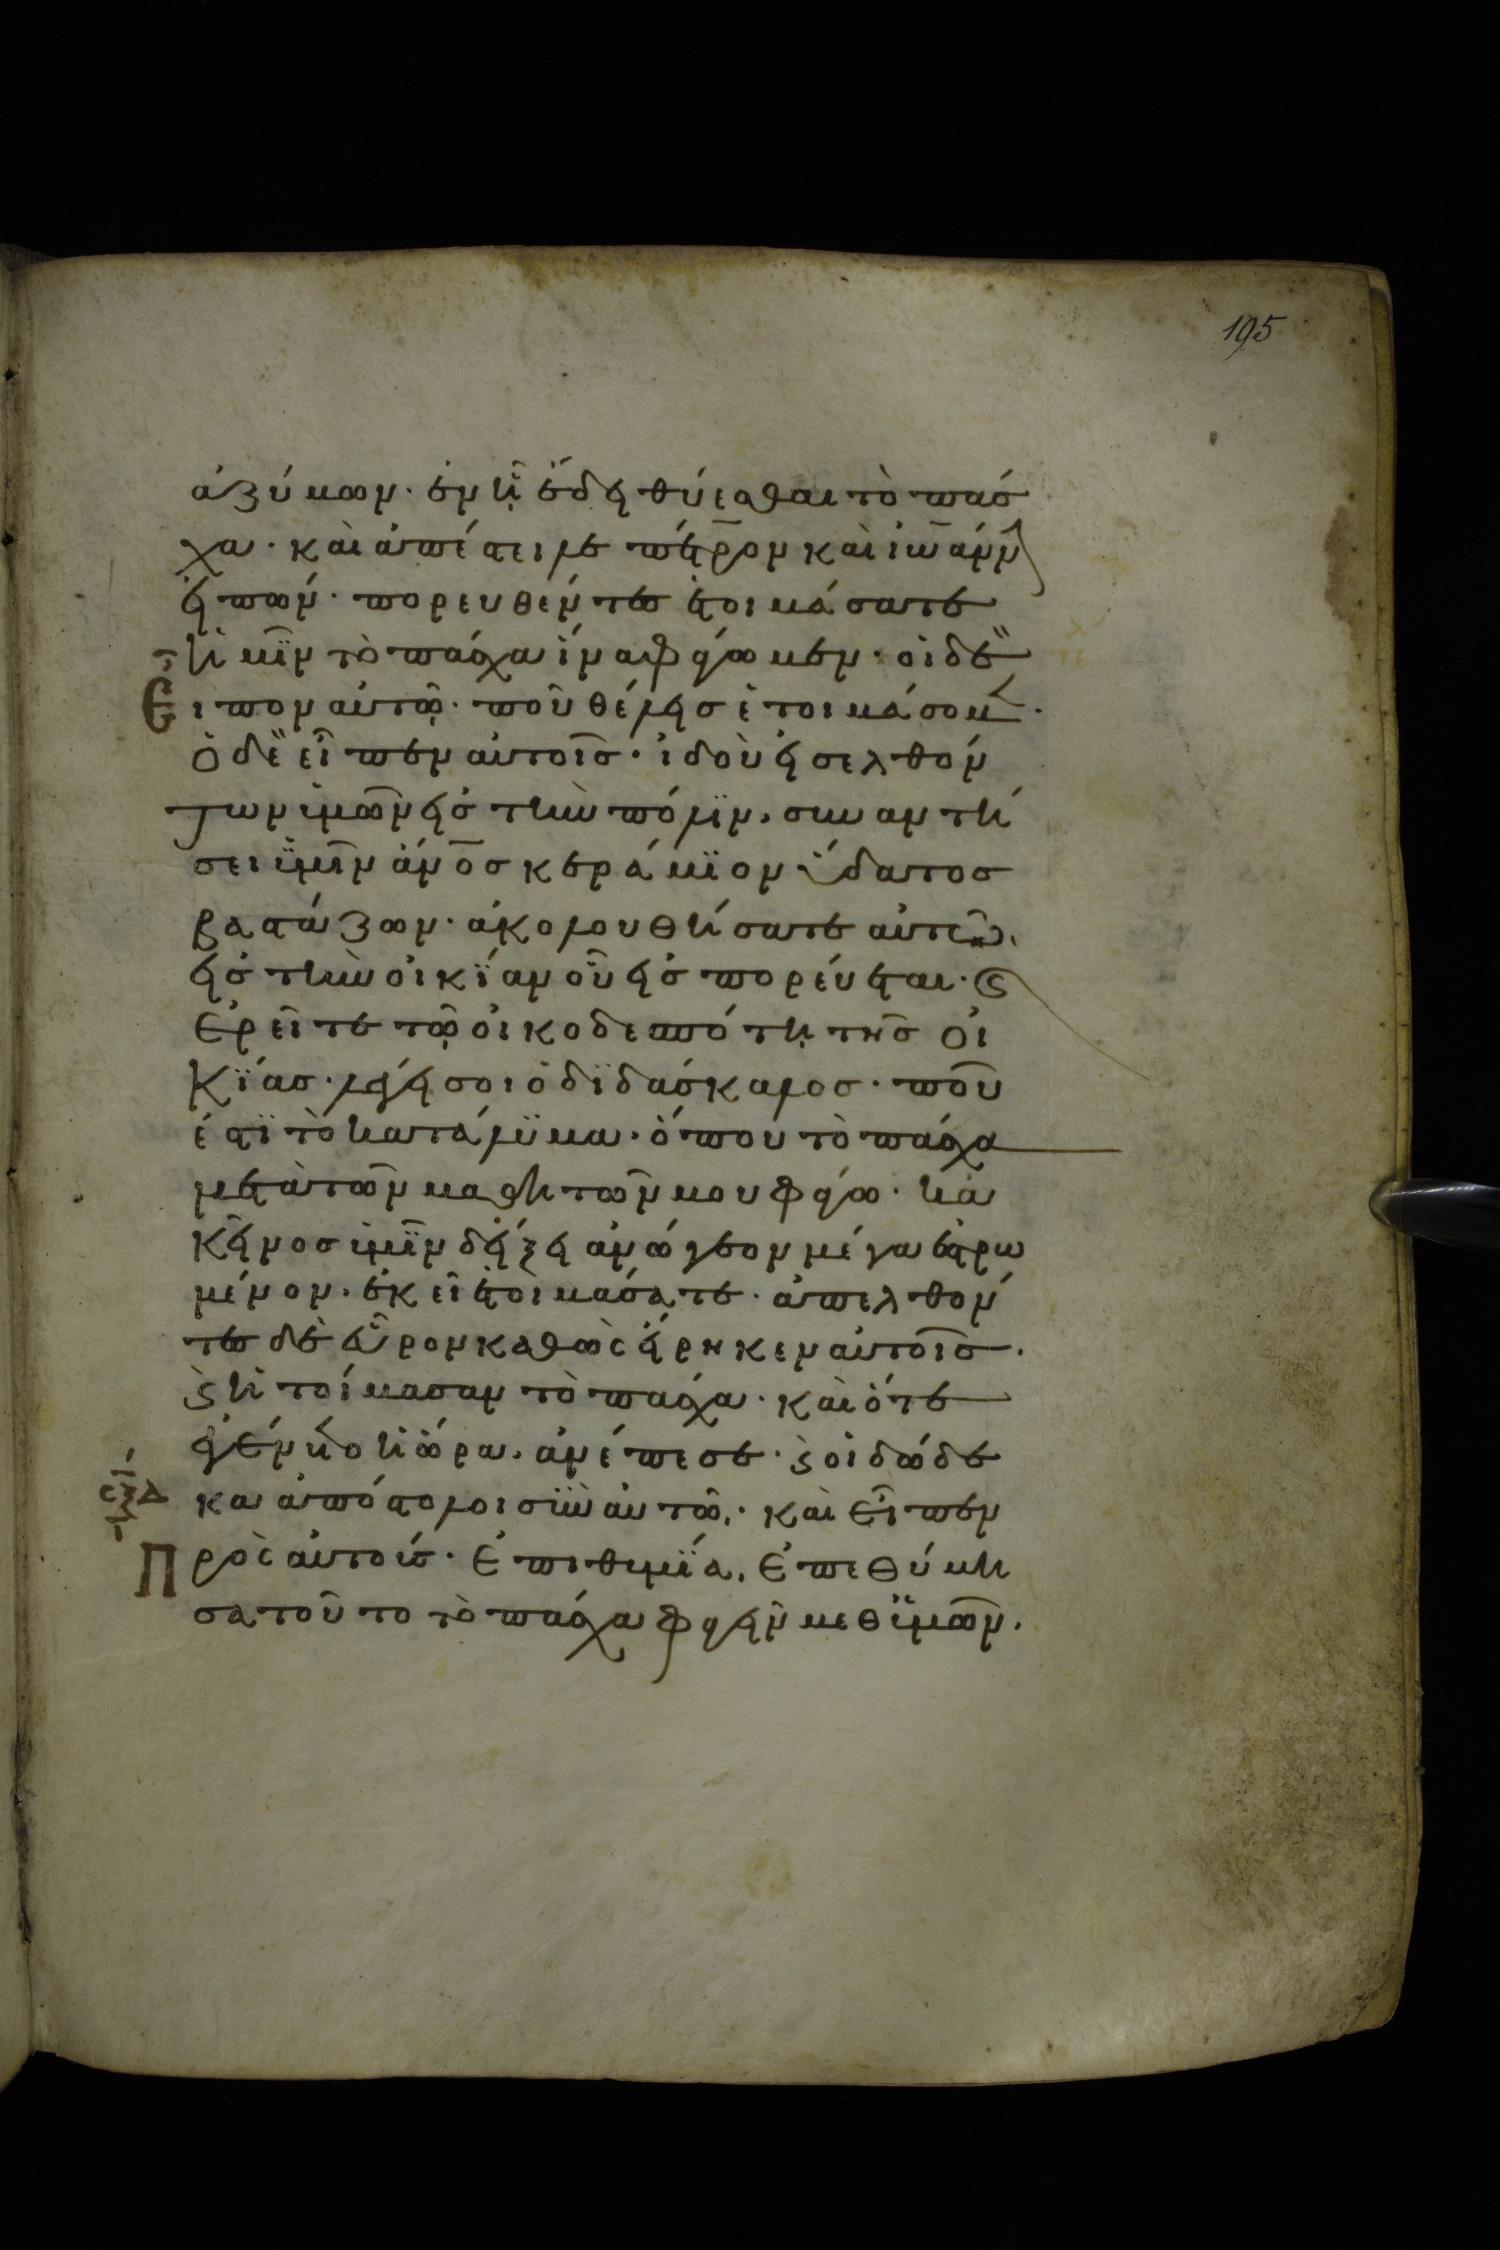 195
ἀζύμων· ἐν ἧ ἔδει θύεσθαι τὸ πάσ
χα· καὶ ἀπέστειλε πέτρον καὶ ἰω̅άννην
εἰπών· πορευθέντες ἑτοιμάσατε
ἡμῖν τὸ πάσχα ἵνα φάγωμεν· οἱ δὲ
Εἶπον αὐτῶ· ποῦ θέλεις ἑτοιμάσομεν·
ὁ δὲ εἶπεν αὐτοῖς· ἰδοὺ εἰσελθόν
των ὑμῶν εἰς τὴν πόλϊν. συναντή
σει ὑμῖν ἄν̅ο̅ς κεράμϊον ὕδατος
βαστάζων· ἀκολουθήσατε αὐτῶ.
εἰς τὴν οἰκϊαν οὗ εἰσπορεύεται· καὶ
ἐρεῖτε τῶ οἰκοδεσπότη τῆς οἰ
κϊας· λέγει σοι ὁ δϊδάσκαλος· ποῦ
ἐστϊ τὸ κατάλϋμα· ὅπου τὸ πάσχα
μετὰ τῶν μαθητῶν μου φάγω· κἀ
κεῖνος ὑμῖν δείξει ἀνώγεον μέγα ἐστρω
μένον. ἐκεῖ ἑτοιμάσατε· ἀπελθόν
τες δὲ εὗρον καθὼς εἴρηκεν αὐτοῖς.
καὶ ἡτοίμασαν τὸ πάσχα· καὶ ὅτε
ἐγένετο ἡ ὥρα. ἀνέπεσε· καὶ οἱ δώδε
σξδ κα ἀπόστολοι σὺν αὐτῶ.· καὶ εἶπεν
Πρὸς αὐτούς· ἐπιθυμϊα. ἐπεθύμη
σα τοῦτο τὸ πάσχα φαγεῖν μεθ ὑμῶν.